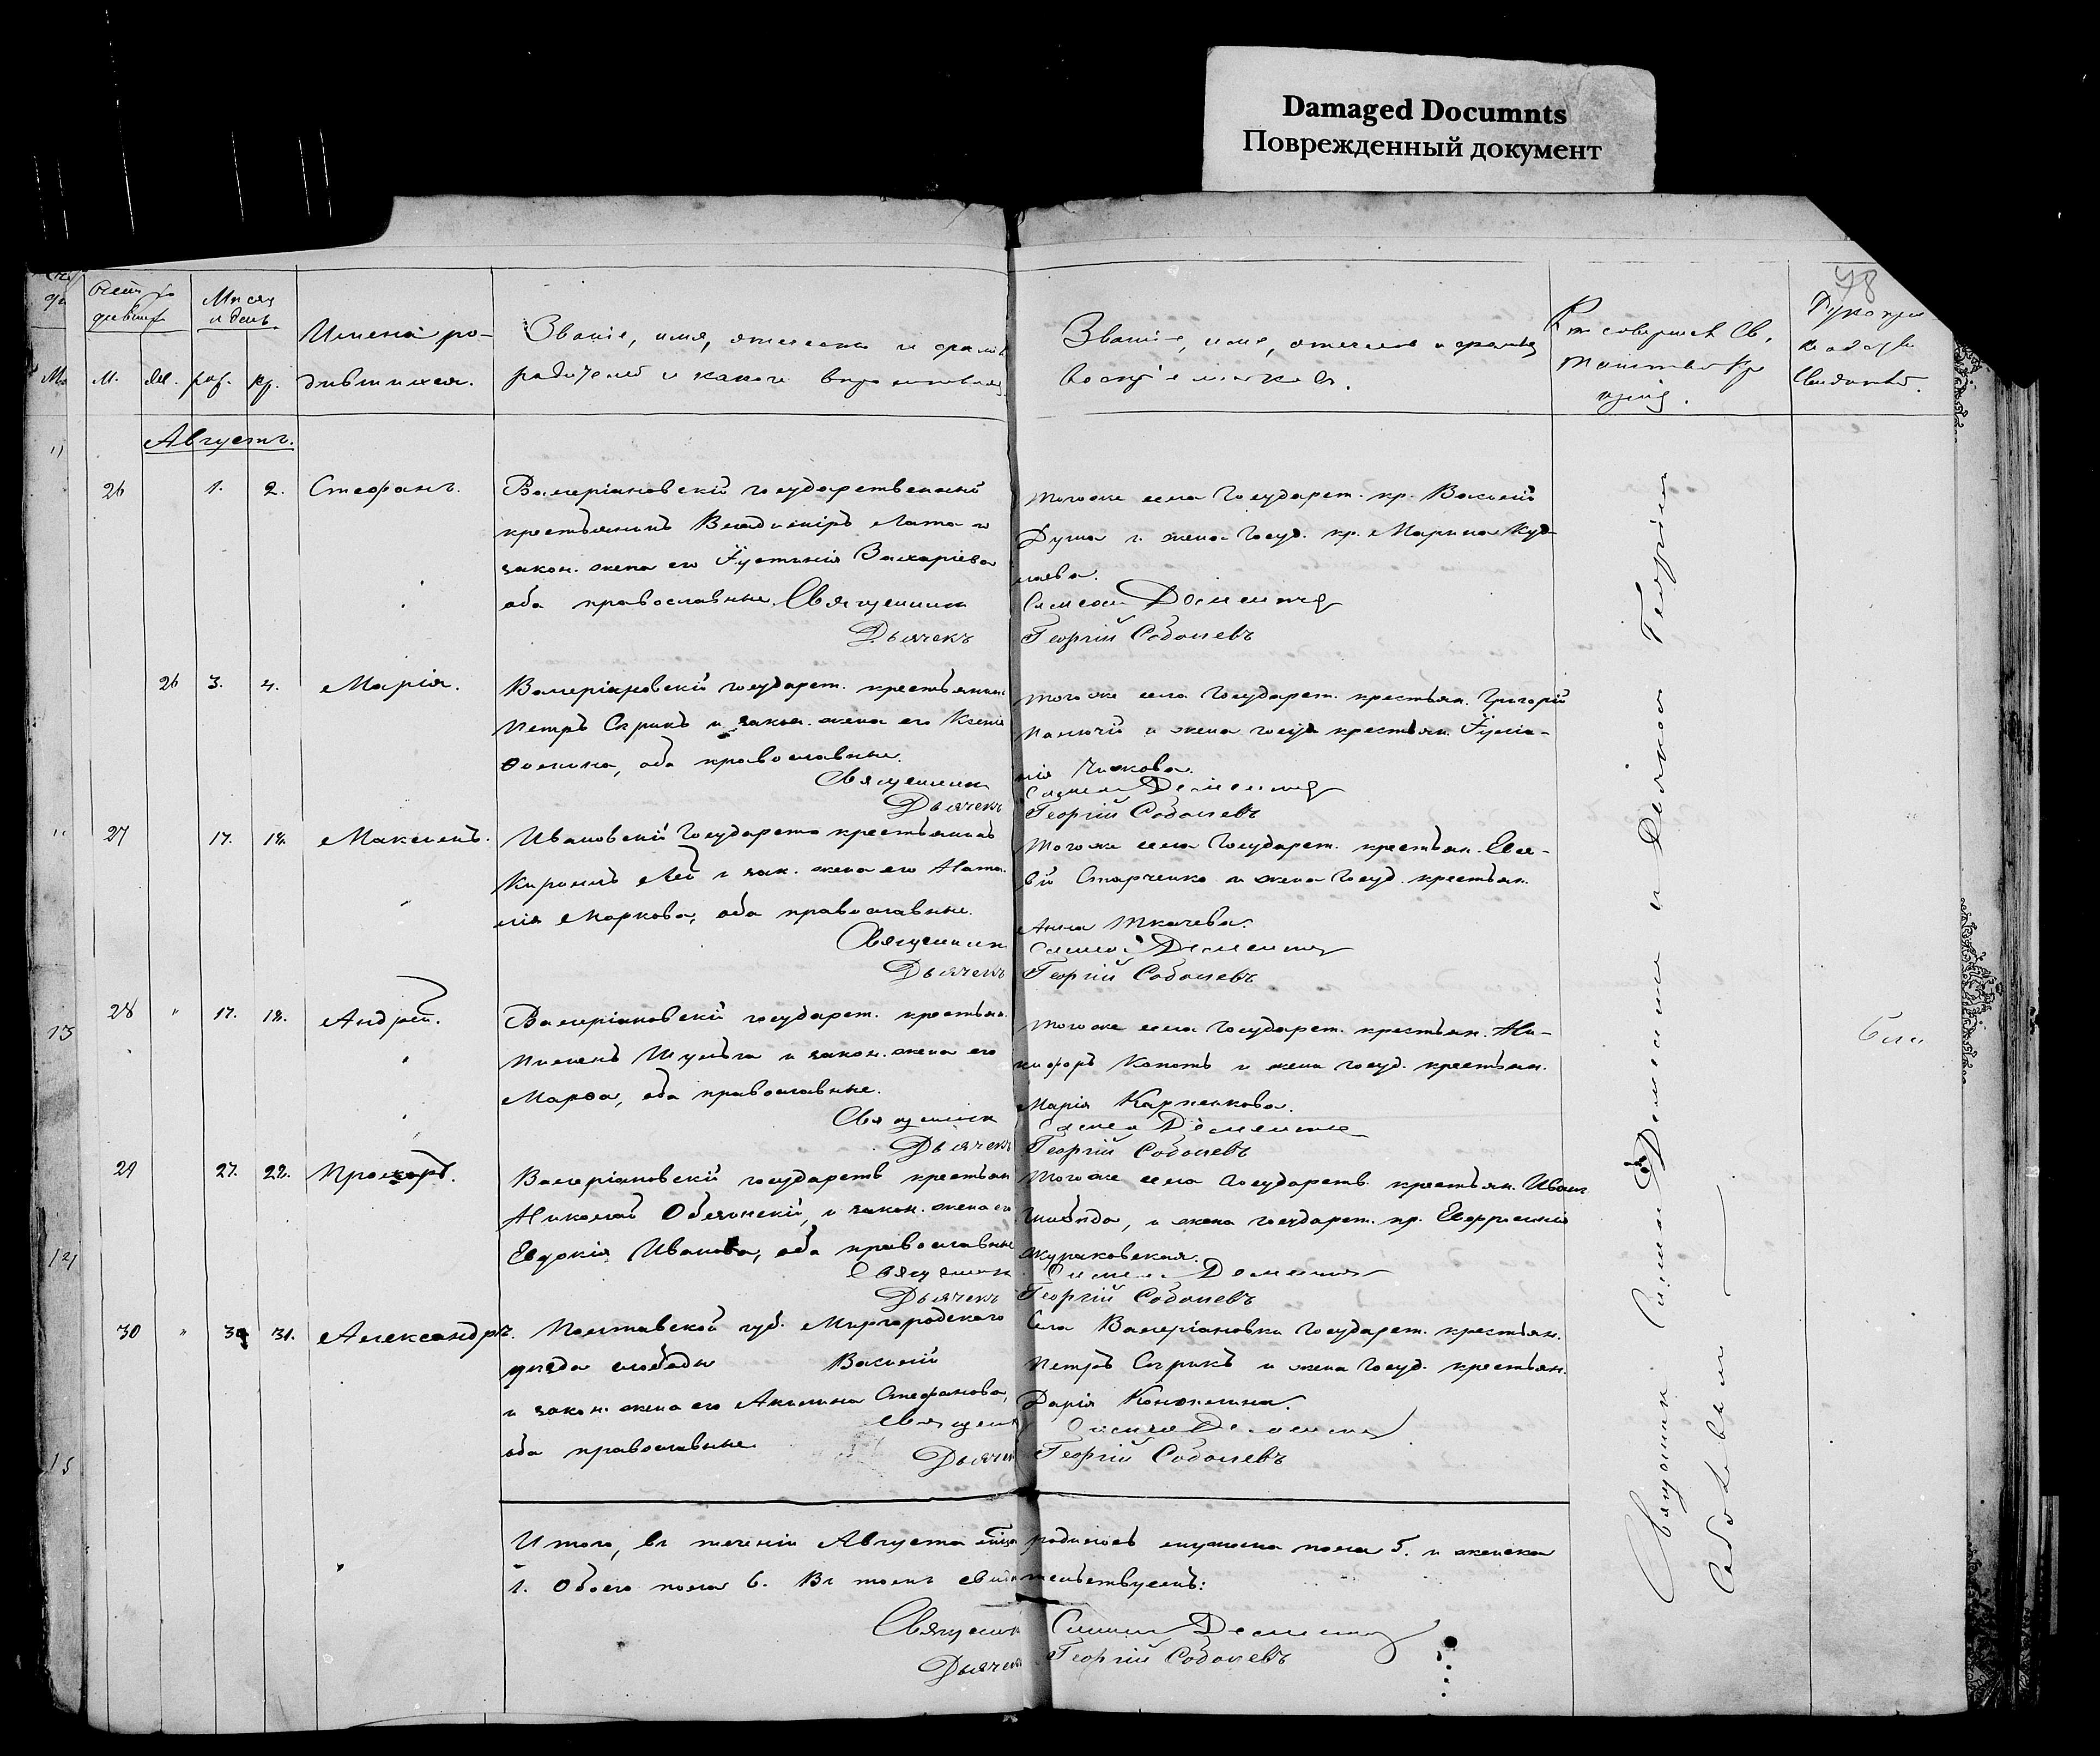 Damaged Documnts
Поврежденный документ
48
Счетъ ро
дивших
Мѣсяц
и день
М.
Же.
рож.
кр.
Имена ро-
дившихся.
Званіе, имя, отчество и фамил
родителей и какого вѣроисповѣд
Званіе, имя, отчество и фамилія
воспріемниковъ.
Кто совершалъ Св.
таинство кре
щенія.
Рукопри
свидѣтел.
Августъ.
26 1. 2. Стефанъ.
Валеріановскій государственный
крестьянинъ Владиміръ Лата и
закон. жена его Іустинія Захаріева
оба православные. Священник
Дьячекъ
Тогоже села Государст. кр. Василій
Душа и жена Госуд. кр. Марина Куд-
лаева.
Симеон Дементьев
Георгій Соболевъ
26 3. 4. Марія.
Валеріановскій государст. крестьянин
Петръ Скрикъ и закон. жена его Ксенія
Фомина, оба православные.
Священник
Дьячекъ
Того же села Государст. крестьян. Григорій
и жена госуд крестьян. Іуліа-
нія Чижкова.
Симеон Дементьев
Георгій Соболевъ
27 17. 18. Максимъ.
Ивановскій Государств крестьянинъ
Кирилъ Лей и зак. жена его Ната-
лія Маркова, оба православные.
Священник
Дьячекъ
Того же села Государст. крестьян. Евсе-
вій Старченко и жена Госуд. крестьян.
Анна Ткачева.
Симеон Дементьев
Георгій Соболевъ
28 " 17. 18. Андрей.
Валеріановскій государст. крестьян.
Пименъ Шульга и закон. жена его
Марѳа, оба православные.
Священник
Дьячекъ
Того же села Государст. крестьян. Ни-
кифоръ Копоть и жена госуд. крестьян.
Марія Карпенкова.
Симеон Дементьев
Георгій Соболевъ
29 27. 28. Прохоръ.
Валеріановскій государств крестьян
Николай Обезинскій, и закон. жена его
Евдокія Иванова, оба православные
Священник
Дьячекъ
Того же села Государств. крестьян. Иванъ
и жена государст. кр. Евфросинія
Жураковская.
Симеон Дементьев
Георгій Соболевъ
30 " 30 31. Александръ.
Полтавской губ. Миргородскаго
уѣзда слободы Василій
и закон. жена его Акилина Стефанова,
оба православные
Священник
Дьячек
Села Валеріановки Государст. крестьян.
Петръ Скрикъ и жена Госуд. крестьян.
Дарія Конюшина.
Симеон Дементьев
Георгій Соболевъ
Итого, въ теченіи Августа мѣсяца родилось мужеска пола 5. и женска
1. Обоего пола 6. Въ томъ свидѣтельствуемъ:
Священник Симеон Дементьев
Дьячек Георгій Соболевъ
Священник Симеон Дементьев и Дьячекъ Георгій
Соболевъ
13
15